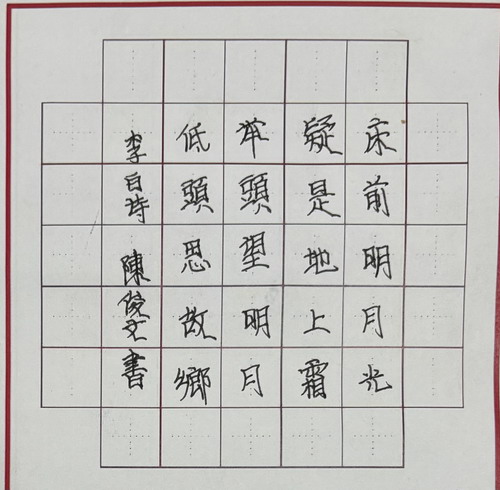 床前明月光
疑是地上霜
举頭望明月
低頭思故鄉
李白詩 陳俊文書